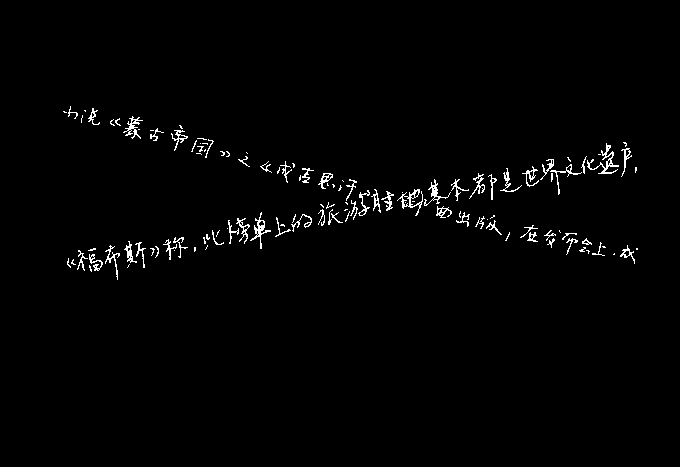 小说《蒙古帝国》之《成吉思汗出版，在发布会上.成
《福布斯》称，此榜单上的旅游胜地基本都是世界文化遗产，